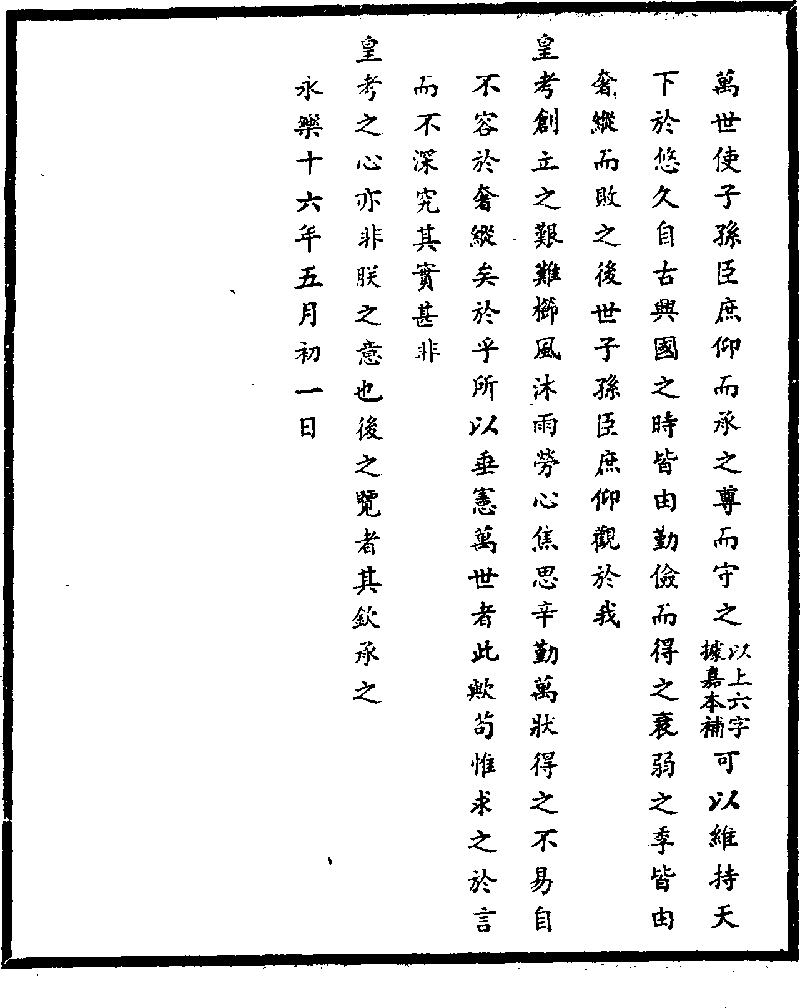 萬世使子孫臣庶仰而承之尊而守之以上六字據嘉本補可以維持天
下於悠久自古興國之時皆由勤儉而得之衰弱之季皆由
奢縱而敗之後世子孫臣庶仰觀於我
皇考創立之艱難櫛風沐雨勞心焦思辛勤萬狀得之不易自
不容於奢縱矣於乎所以垂憲萬世者此歟苟惟求之於言
而不深究其實甚非
皇考之心亦非朕之意也後之覽者其欽承之
永樂十六年五月初一日